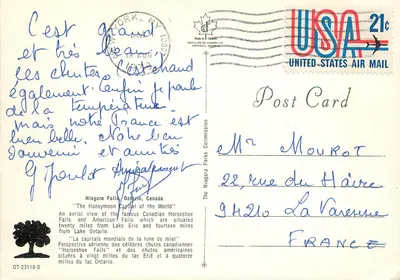 C'est grand
et très beau
les chutes, c'est chaud
également. Enfin je parle
de la température.
Mais notre France est
bien belle. Notre bon
souvenir et amitiés
G
YORK, NY
USA 21c
UNITED STATES AIR MAIL
Post Card
The Niagara Parks Commission
Mr MOUROT
22, rue du Hâvre
94210 La Varenne
FRANCE
Niagara Falls, Ontario, Canada
"The Honeymoon Capital of the World"
An aerial view of the famous Canadian Horseshoe
Falls and American Falls which are situated
twenty miles from Lake Erie and fourteen miles
from Lake Ontario.
"La capitale mondiale de la lune de miel"
Perspective aérienne des célèbres chutes canadiennes
"Horseshoe Falls" et des chutes américaines
situées à vingt milles du lac Erié et à quatorze
milles du lac Ontario.
DT-23118-D